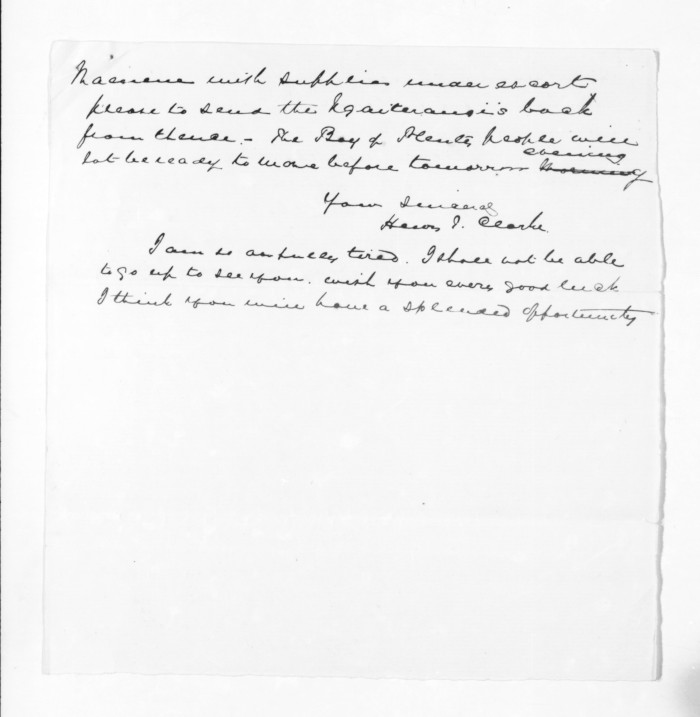 with supplies under escort
please to send the Ngaiterangi's back
from thence. - The Bay of Plenty people will
evening
not be ready to move before tomorrow morning
Yours sincerely
Henry T. Clarke
I am so awfully tired. I shall not be able
to go up to see you. wish you every good luck
I think you will have a splendid opportunity